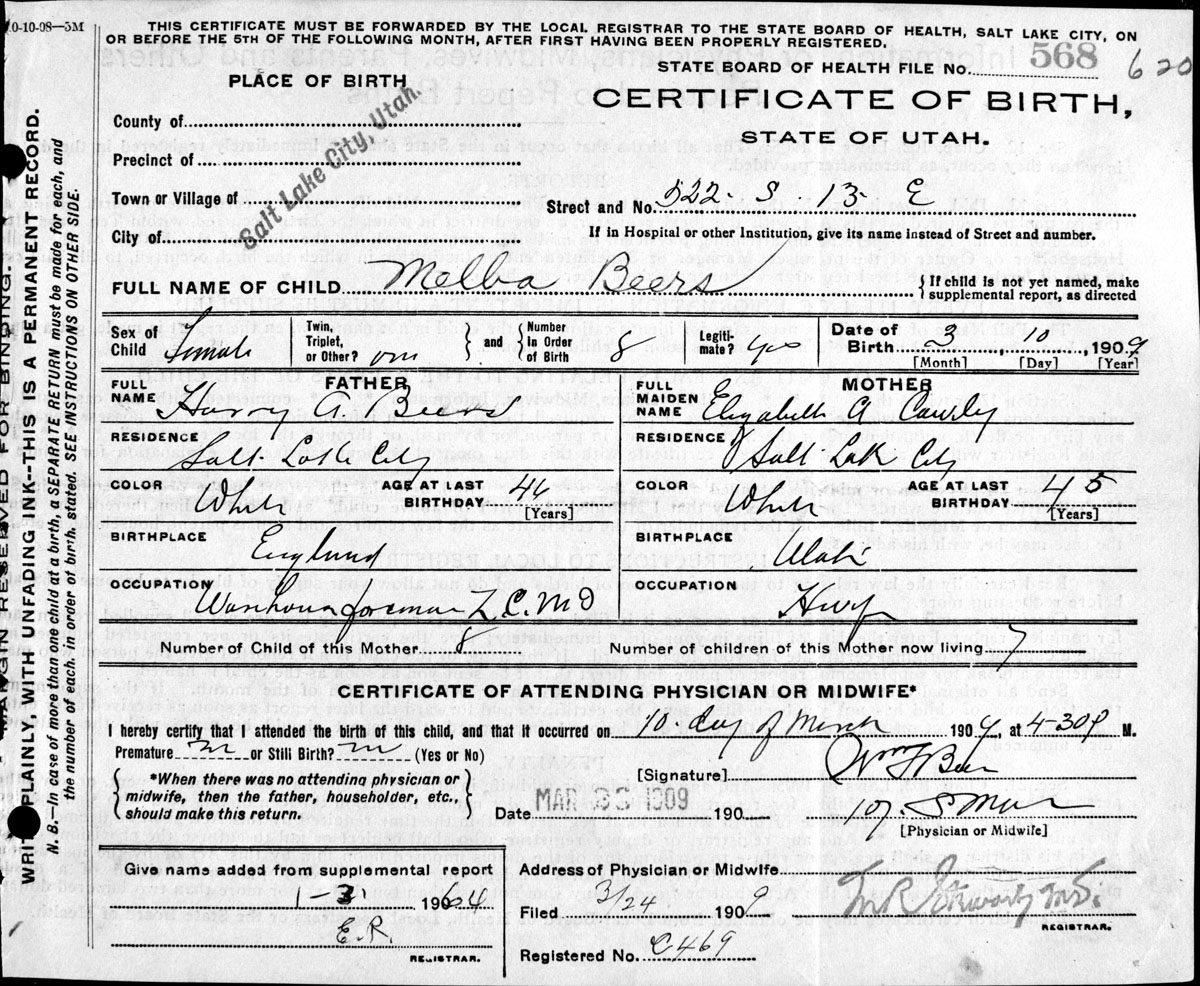 10-10-08—5M
THIS CERTIFICATE MUST BE FORWARDED BY THE LOCAL REGISTRAR TO THE STATE BOARD OF HEALTH, SALT LAKE CITY, ON
OR BEFORE THE 5TH OF THE FOLLOWING MONTH, AFTER FIRST HAVING BEEN PROPERLY REGISTERED.
STATE BOARD OF HEALTH FILE No. 568 620
PLACE OF BIRTH
CERTIFICATE OF BIRTH,
STATE OF UTAH.
County of
Precinct of
Town or Village of
City of
Salt Lake City, Utah.
Street and No. 522 S 13 E
If in Hospital or other Institution, give its name instead of Street and number.
FULL NAME OF CHILD Melba Beers
If child is not yet named, make
supplemental report, as directed
Sex of Child Female
Twin, Triplet, or Other?
and Number in Order of Birth 8
Legitimate? yes
Date of Birth 3 10 1909
[Month] [Day] [Year]
FATHER
FULL NAME Harry A. Beers
RESIDENCE Salt Lake City
COLOR White
AGE AT LAST BIRTHDAY 46 [Years]
BIRTHPLACE England
OCCUPATION Warehouse foreman Z.C.M.I
MOTHER
FULL MAIDEN NAME Elizabeth A
RESIDENCE Salt Lake City
COLOR White
AGE AT LAST BIRTHDAY 45 [Years]
BIRTHPLACE Utah
OCCUPATION
Number of Child of this Mother 8
Number of children of this Mother now living 7
CERTIFICATE OF ATTENDING PHYSICIAN OR MIDWIFE*
I hereby certify that I attended the birth of this child, and that it occurred on 10 day of March 1909, at 4-30 P M.
Premature or Still Birth? (Yes or No)
*When there was no attending physician or
midwife, then the father, householder, etc.,
should make this return.
[Signature] Wm F Beer
Date MAR 1909 190
107. S Main
[Physician or Midwife]
Give name added from supplemental report
1-3 1964
E.R.
REGISTRAR.
Address of Physician or Midwife
Filed 3/24 1909
REGISTRAR.
Registered No. C469
MARGIN RESERVED FOR BINDING.
WRITE PLAINLY WITH UNFADING INK--THIS IS A PERMANENT RECORD.
N. B.—In case of more than one child at a birth, a SEPARATE RETURN must be made for each, and
the number of each, in order of birth, stated. SEE INSTRUCTIONS ON OTHER SIDE.